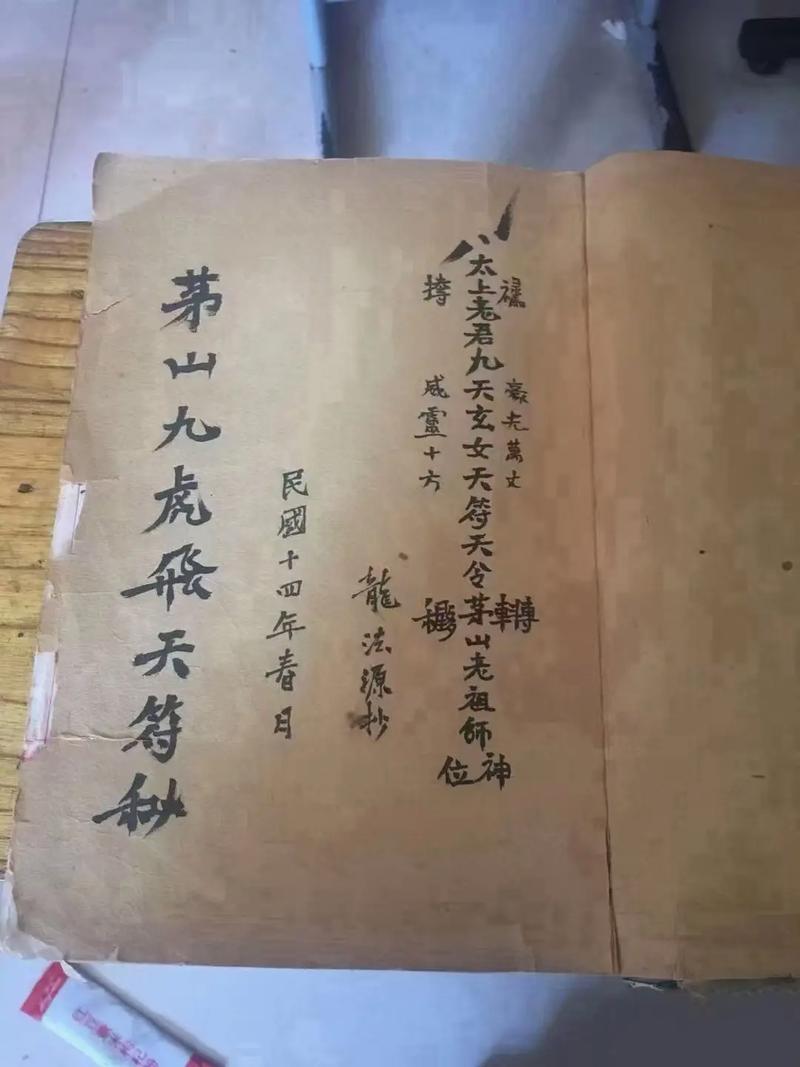 豪光萬丈
轉
太上老君九天玄女天符天兮茅山老祖師神位
威靈十方
龍法源抄
民國十四年春日
茅山九虎飛天符秘